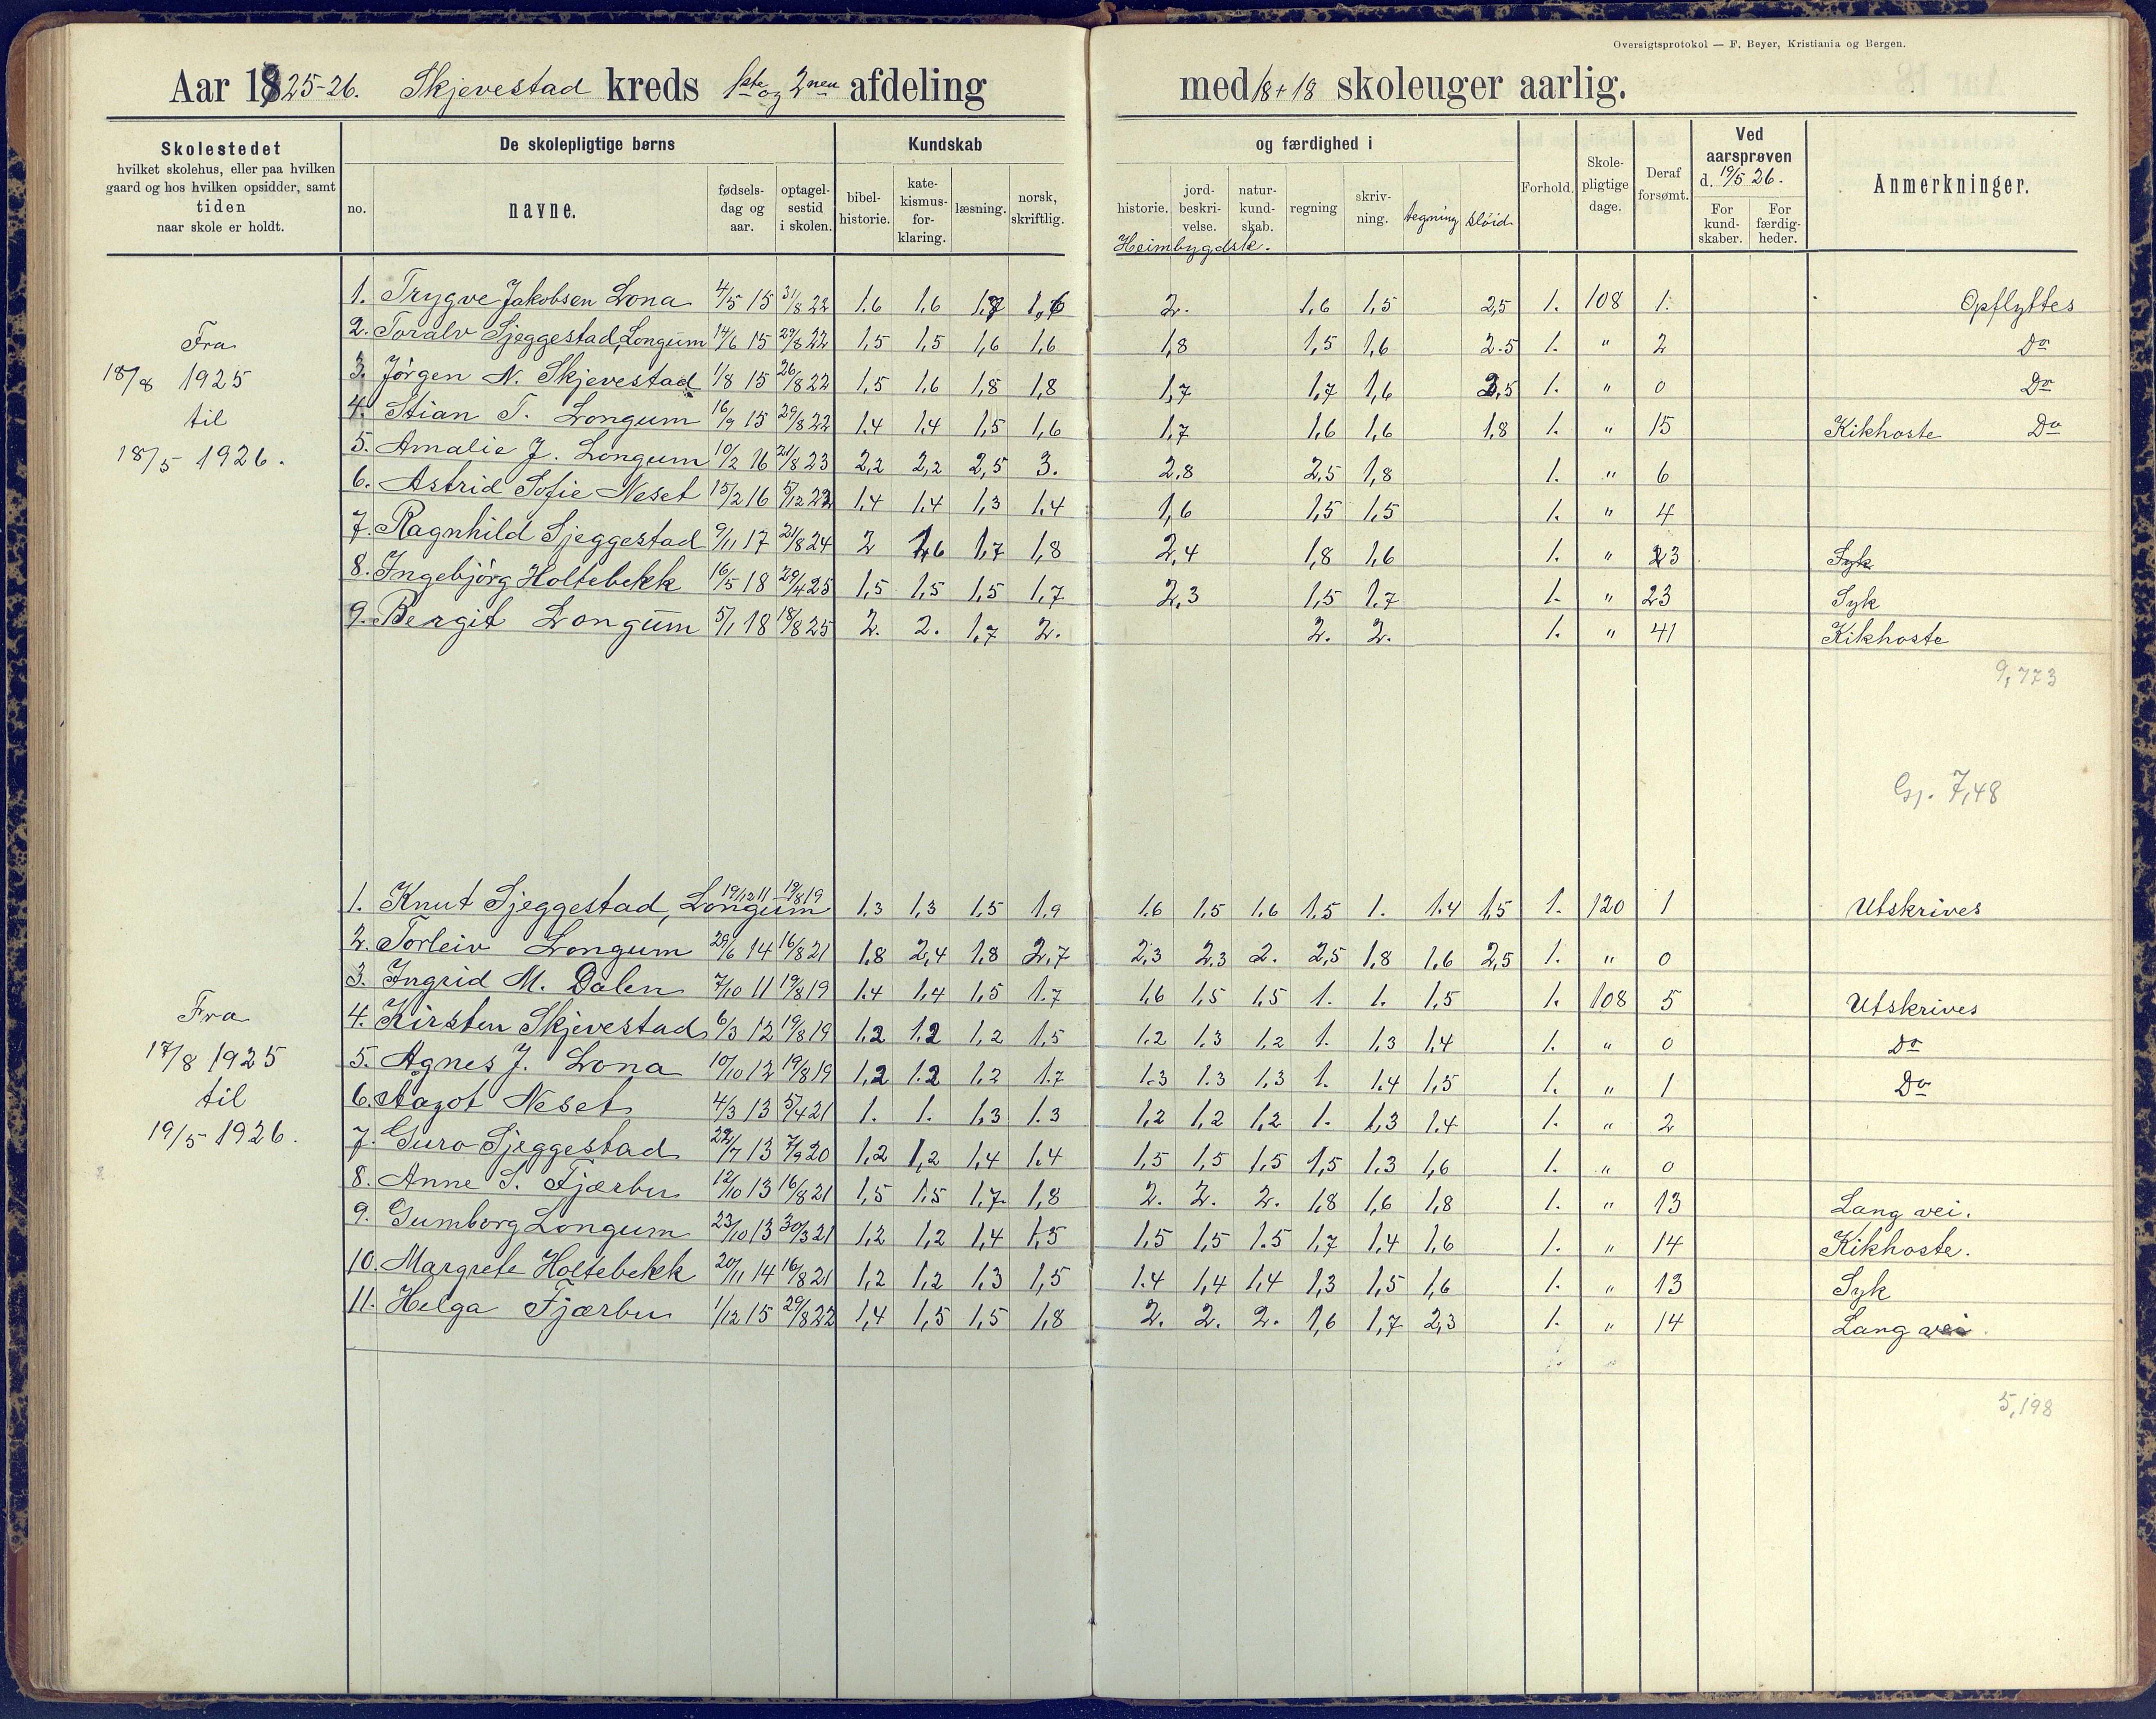 Oversigtsprotokol — F. Beyer, Kristiania og Bergen.
Aar 1925-26. Skjevestad kreds 1ste og 2nen afdeling med 18+18 skoleuger aarlig.
Skolestedet
hvilket skolehus, eller paa hvilken
gaard og hos hvilken opsidder, samt
tiden
naar skole er holdt.
De skolepligtige børns
no.
navne.
fødsels-
dag og
aar.
optagel-
sestid
i skolen.
Kundskab
bibel-
historie.
kate-
kismus-
for-
klaring.
læsning.
norsk,
skriftlig.
og færdighed i
historie.
jord-
beskri-
velse.
natur-
kund-
skab.
Heimbygdsk.
regning
skriv-
ning.
tegning
sløid
Forhold.
Skole-
pligtige
dage.
Deraf
forsømt.
Ved
aarsprøven
d. 19/5 26.
For
kund-
skaber.
For
færdig-
heder.
Anmerkninger.
Fra
18/8 1925
til
18/5 1926.
1. Trygve Jakobsen Lona 4/5 15 31/8 22 1.6 1,6 1,7 1,6 2. 1,6 1,5 2,5 1. 108 1. Opflyttes
2. Toralv Sjeggestad, Longum 14/6 15 29/8 22 1,5 1,5 1,6 1,6 1,8 1,5 1,6 2.5 1. " 2 Do
3. Jørgen N. Skjevestad 1/8 15 26/8 22 1,5 1,6 1,8 1,8 1,7 1,7 1,6 2,5 1. " 0 Do
4. Stian T. Longum 16/9 15 29/8 22 1.4 1.4 1,5 1,6 1,7 1,6 1,6 1,8 1. " 15 Kikhoste Do
5. Amalie J. Longum 10/2 16 21/8 23 2,2 2,2 2,5 3. 2,8 2,5 1,8 1. " 6
6. Astrid Sofie Neset 15/2 16 5/12 22 1.4 1.4 1,3 1.4 1,6 1,5 1,5 1. " 4
7. Ragnhild Sjeggestad 9/11 17 21/8 24 2 1,6 1,7 1,8 2,4 1,8 1,6 1. " 23 Syk
8. Ingebjørg Holtebekk 16/5 18 29/4 25 1,5 1,5 1,5 1.7 2,3 1,5 1.7 1. " 23 Syk
9. Bergit Longum 5/1 18 18/8 25 2. 2. 1,7 2. 2. 2. 1. " 41 Kikhoste
9,773
Gj. 7,48
Fra
17/8 1925
til
19/5 1926.
1. Knut Sjeggestad, Longum 19/12 11 19/8 19 1.3 1,3 1,5 1,9 1.6 1,5 1,6 1,5 1. 1.4 1,5 1. 120 1 Utskrives
2. Torleiv Longum 29/6 14 16/8 21 1,8 2,4 1,8 2,7 2,3 2.3 2. 2,5 1,8 1,6 2,5 1. " 0
3. Ingrid M. Dalen 7/10 11 19/8 19 1.4 1,4 1,5 1.7 1,6 1,5 1,5 1. 1. 1,5 1. 108 5 Utskrives
4. Kirsten Skjevestad 6/3 12 19/8 19 1.2 1.2 1,2 1,5 1.2 1.3 1,2 1. 1,3 1,4 1. " 0 Do
5. Agnes J. Lona 10/10 12 19/8 19 1,2 1.2 1,2 1.7 1.3 1.3 1,3 1. 1.4 1,5 1. " 1 Do
6. Aagot Neset 4/3 13 5/4 21 1. 1. 1,3 1.3 1,2 1,2 1,2 1. 1,3 1.4 1. " 2
7. Guro Sjeggestad 22/7 13 7/9 20 1,2 1,2 1,4 1.4 1,5 1,5 1.5 1,5 1.3 1,6 1. " 0
8. Anne S. Fjærbu 12/10 13 16/8 21 1,5 1.5 1,7 1,8 2. 2. 2. 1,8 1,6 1,8 1. " 13 Lang vei.
9. Gumborg Longum 23/10 13 30/3 21 1,2 1,2 1,4 1,5 1,5 1,5 1.5 1,7 1,4 1,6 1. " 14 Kikhoste.
10. Margrete Holtebekk 20/11 14 16/8 21 1,2 1,2 1,3 1,5 1.4 1,4 1,4 1,3 1,5 1,6 1. " 13 Syk
11. Helga Fjærbu 1/12 15 29/8 22 1,4 1,5 1,5 1,8 2. 2. 2. 1,6 1,7 2,3 1. " 14 Lang vei
5,198